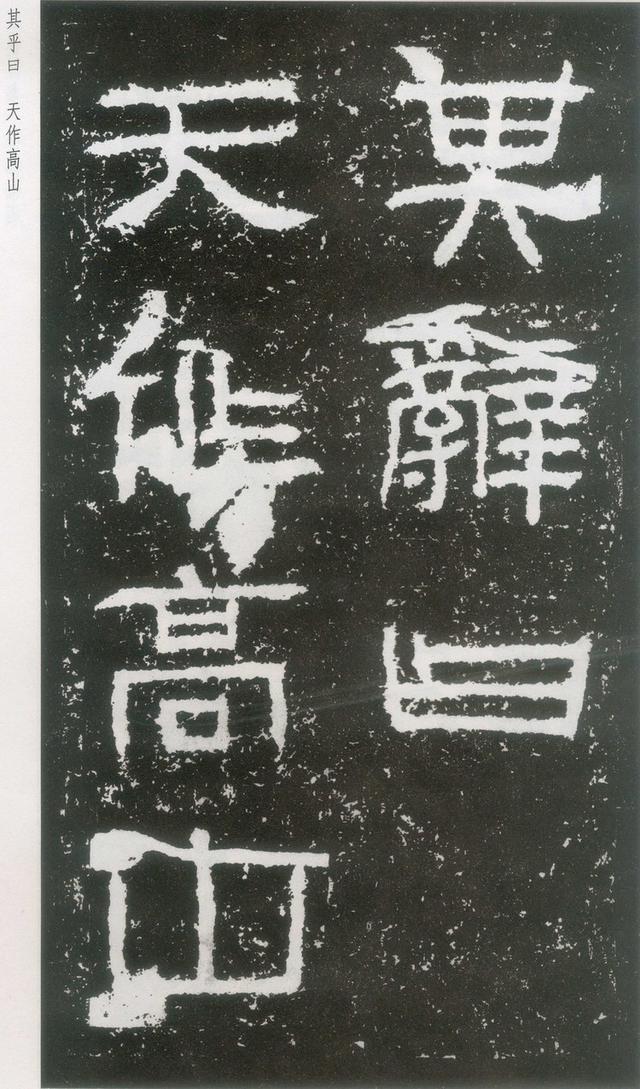 其辭曰
天作高山
其乎曰　天作高山